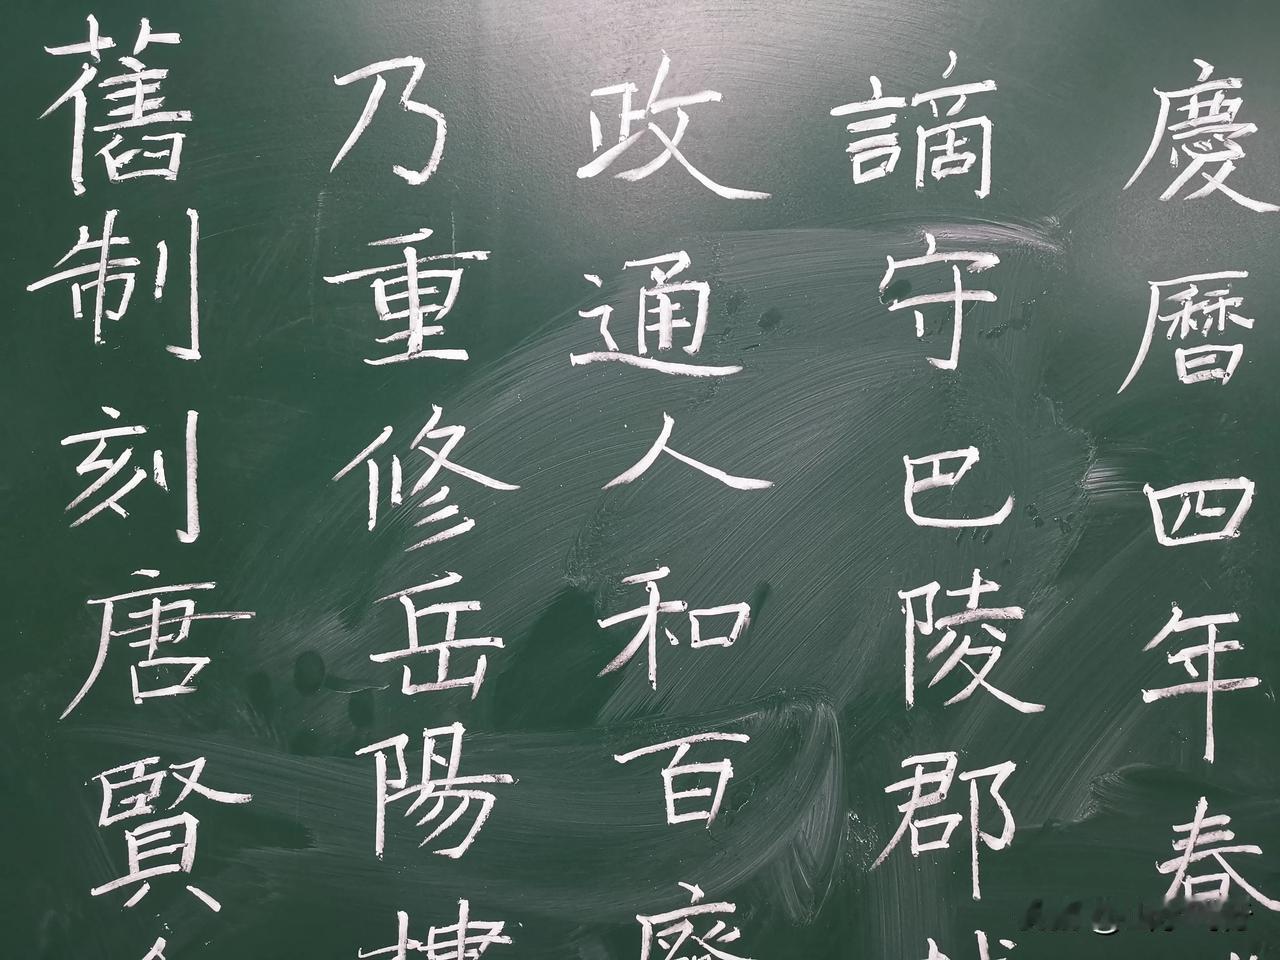 慶曆四年春
謫守巴陵郡
政通人和百廢
乃重修岳陽樓
舊制刻唐賢